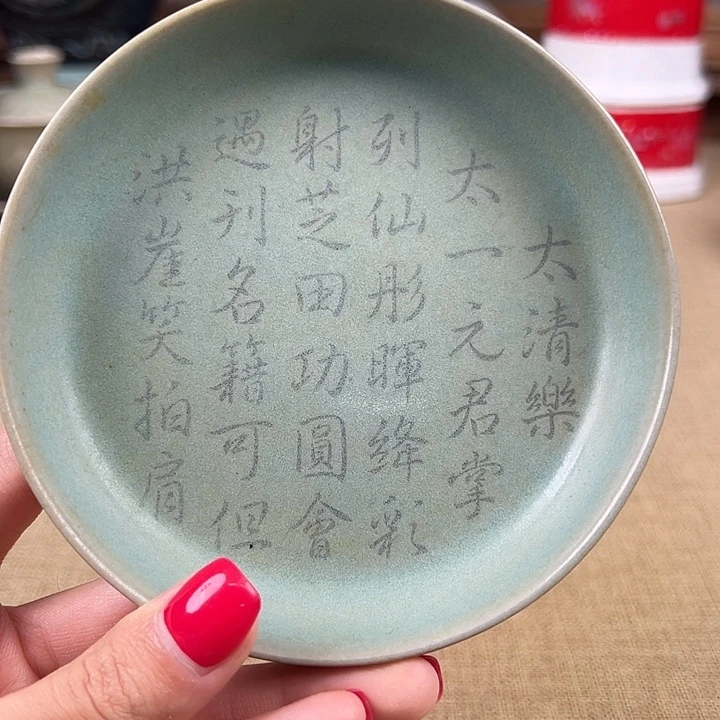 太清樂
太一元君掌
列仙彤暉絳彩
射芝田功圓會
遇刊名籍可但
洪崖笑拍肩